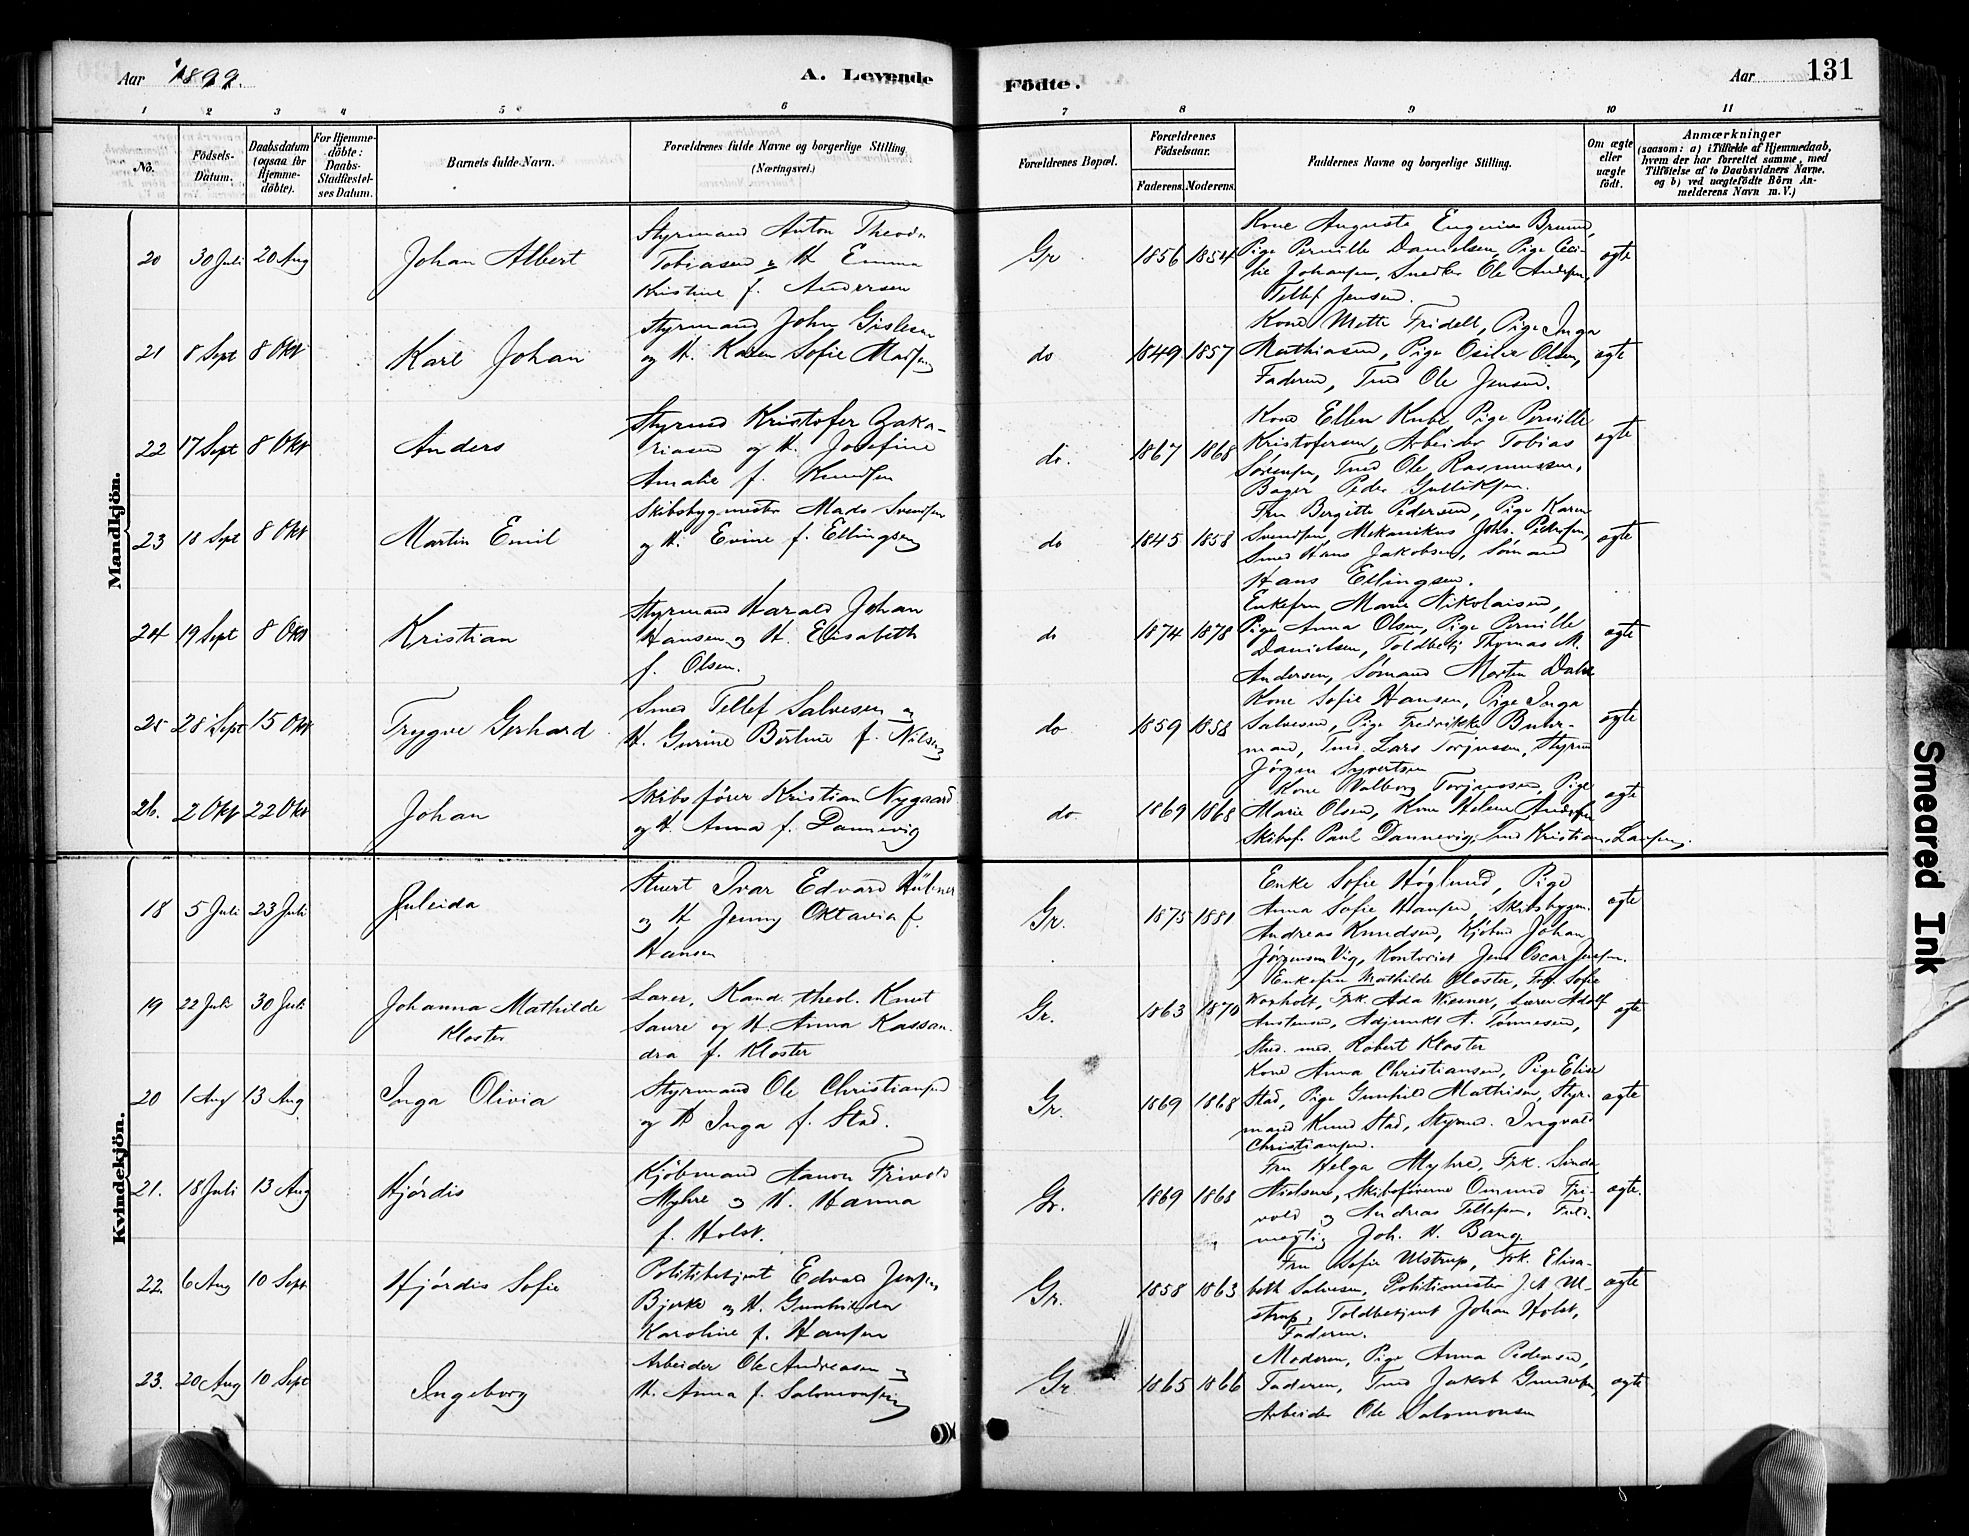 Aar 1899.
A. Levende
Födte.
Aar
131
1 2 3 4 5 6 7 8 9 10 11
No.
Födsels-
Datum.
Daabsdatum
(ogsaa for
Hjemme-
döbte).
For Hjemme-
döbte:
Daabs-
Stadfæstel-
ses Datum.
Barnets fulde Navn.
Forældrenes fulde Navne og borgerlige Stilling
(Næringsvei.)
Forældrenes Bopæl.
Forældrenes
Födselsaar.
Faderens.
Moderens.
Faddernes Navne og borgerlige Stilling.
Om ægte
eller
uægte
födt.
Anmærkninger
(saasom: a) i Tilfælde af Hjemmedaab,
hvem der har forrettet samme, med
Tilföielse af to Daabsvidners Navne,
og b) ved uægtefödte Börn An-
melderens Navn m. V.)
Mandkjön.
20 30 Juli 20 Aug
Johan Albert
Styrmand Anton Theodor
Tobiasen og H Emma
Kristine f. Andersen
Gr 1856 1854
Kone Auguste Eugenie Brund,
Pige Pernille Danielsen, Pige Ceci-
lie Johansen, Snedker Ole Andersen,
Tellef Jensen.
ægte
21 8 Sept 8 Okt
Karl Johan
Styrmand John Gislesen
og H. Karen Sofie Madsen
do 1849 1857
Kone Mette Fridell, Pige Inga
Mathiasen, Pige Osilie Olsen,
Faderen, Tmd Ole Jensen.
ægte
22 17 Sept 8 Okt
Anders
Styrmd Kristofer Zaka-
riasen og H. Josefine
Amalie f. Knudsen
do. 1867 1868
Kone Ellen Kube, Pige Pernille
Kristofersen, Arbeider Tobias
Sörensen, Tmd Ole Rasmussen,
Bager Peder Gulliksen.
ægte
23 18 Sept 8 Okt
Martin Emil
Skibsbygmester Mads Svendsen
og H. Evine f. Ellingsen
do 1845 1858
Fru Bergitte Pedersen, Pige Karen
Svendsen, Mekanikus Johs. Pedersen,
Smed Hans Jakobsen, Sömand
Hans Ellingsen.
ægte
24 19 Sept 8 Okt
Kristian
Styrmand Harald Johan
Hansen og H. Elisabeth
f. Olsen.
do 1874 1878
Enkefru Marie Nikolaisen,
Pige Anna Olsen, Pige Pernille
Danielsen, Toldbetj Thomas M.
Andersen, Sömand Morten Dahl
ægte
25 28 Sept 15 Okt
Trygve Gerhard
Smed Tellef Salvesen og
H. Gurine Bertine f. Nilsen
do 1859 1858
Kone Sofie Hansen, Pige Inga
Salvesen, Pige Fredrikke Buhr-
mand, Tmd. Lars Torjussen, Styrm
Jörgen Syvertsen
ægte
26. 2 Okt 22 Okt
Johan
Skibsförer Kristian Nygaard
og H. Anna f. Dannevig
do 1869 1868
Kone Valborg Torjussen, Pige
Marie Olsen, Kone Helene Andersen
Skibsf. Paul Dannevig, Tmd Kristian Larsen.
ægte
Kvindekjön.
18 5 Juli 23 Juli
Juleida
Stuert Ivar Edvard Hübner
og H Jenny Oktavia f.
Hansen
Gr. 1875 1881
Enke Sofie Höglund, Pige
Anna Sofie Hansen, Skibsbygm.
Andreas Knudsen, Kjöbmd Johan
Jörgensen Vig, Kontorist Jens Oscar Jensen.
ægte
19 22 Juli 30 Juli
Johanna Mathilde
Kloster
Lærer, Kand. theol. Knut
Saure og H Anna Kassan-
dra f. Kloster
Gr. 1863 1870
Enkefru Mathilde Kloster, Frk Sofie
Worholt, Frk. Ada Wiesner, Lærer Adolf
Austensen, Adjunkt A. Tönnesen,
Stud. med. Robert Kloster
ægte
20 1 Aug 13 Aug
Inga Olivia
Styrmand Ole Christiansen
og H Inga f. Stad.
Gr. 1869 1868
Kone Anna Christiansen, Pige Elise
Stad, Pige Gunhild Mathisen, Styr-
mand Knud Stad, Styrmd. Ingvald
Christiansen.
ægte
21. 18 Juli 13 Aug
Hjördis
Kjöbmand Aanon Frivold
Myhre og H. Hanna
f. Holst.
Gr. 1869 1868
Fru Helga Myhre, Frk. Sinda
Nielsen, Skibsförerne Omund Fri-
vold og Andreas Tellefsen, Fuld-
mægtig Joh. H. Bang
ægte.
22. 6 Aug 10 Sept
Hjördis Sofie
Politibetjent Edvard Jensen
Bjerke og H. Gunhilda
Karoline f. Hansen
Gr. 1858 1863
Fru Sofie Ulstrup, Frk. Elisa-
beth Salvesen, Politimester J. A. Ul-
strup, Toldbetjent Johan Holst,
Faderen.
ægte
23. 20 Aug 10 Sept
Ingeborg
Arbeider Ole Andreasen og
H. Anna f. Salomonsen
Gr 1865 1866
Moderen, Pige Anna Pedersen,
Faderen, Tmd Jakob Gundersen,
Arbeider Ole Salomonsen
ægte
Smeared Ink